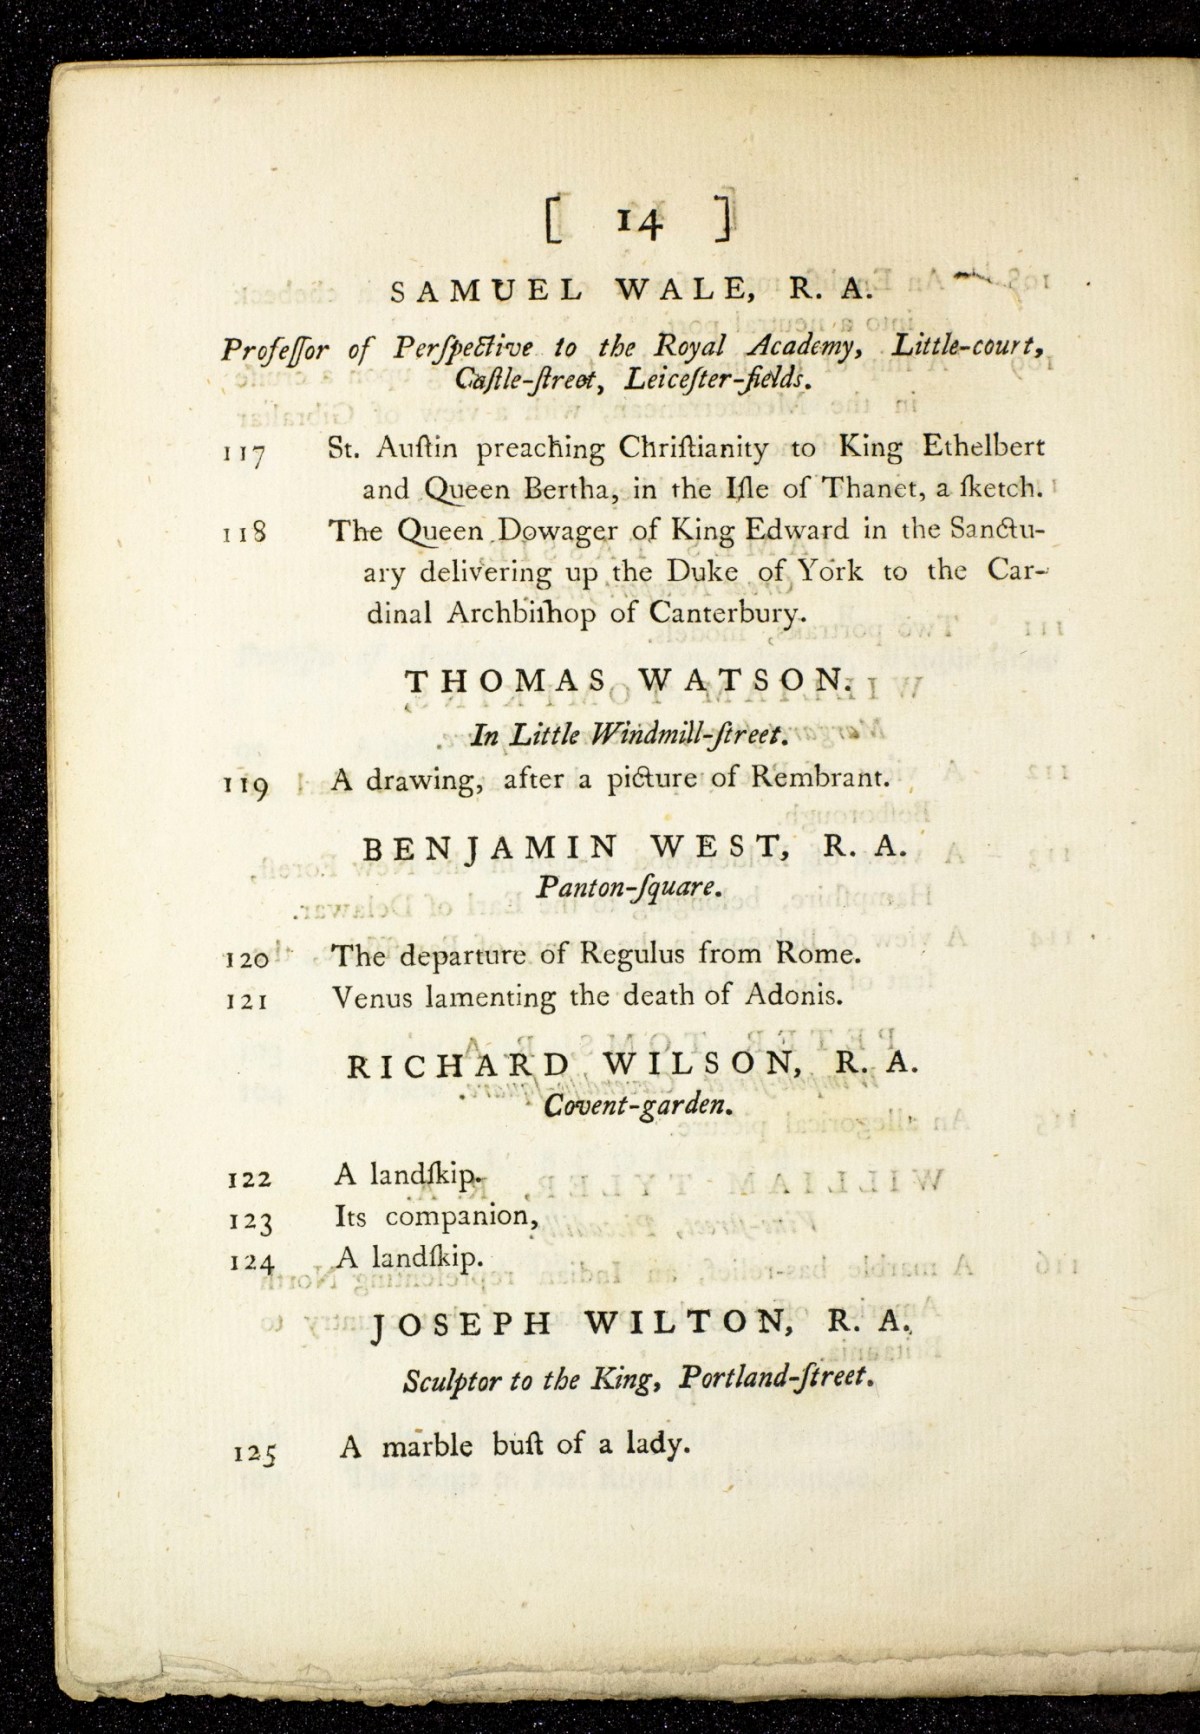 [ 14 ]
SAMUEL WALE, R. A.
Profeſſor of Perſpective to the Royal Academy, Little-court,
Caſtle-ſtreet, Leiceſter-fields.
117 St. Auſtin preaching Chriſtianity to King Ethelbert
and Queen Bertha, in the Iſle of Thanet, a ſketch.
118 The Queen Dowager of King Edward in the Sanctu-
ary delivering up the Duke of York to the Car-
dinal Archbiſhop of Canterbury.
THOMAS WATSON.
In Little Windmill-ſtreet.
119 A drawing, after a picture of Rembrant.
BENJAMIN WEST, R. A.
Panton-ſquare.
120 The departure of Regulus from Rome.
121 Venus lamenting the death of Adonis.
RICHARD WILSON, R. A.
Covent-garden.
122 A landſkip.
123 Its companion,
124 A landſkip.
JOSEPH WILTON, R. A.
Sculptor to the King, Portland-ſtreet.
125 A marble buſt of a lady.